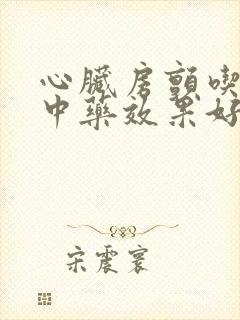 心臟房顫喫
中藥效果好
宋震寰